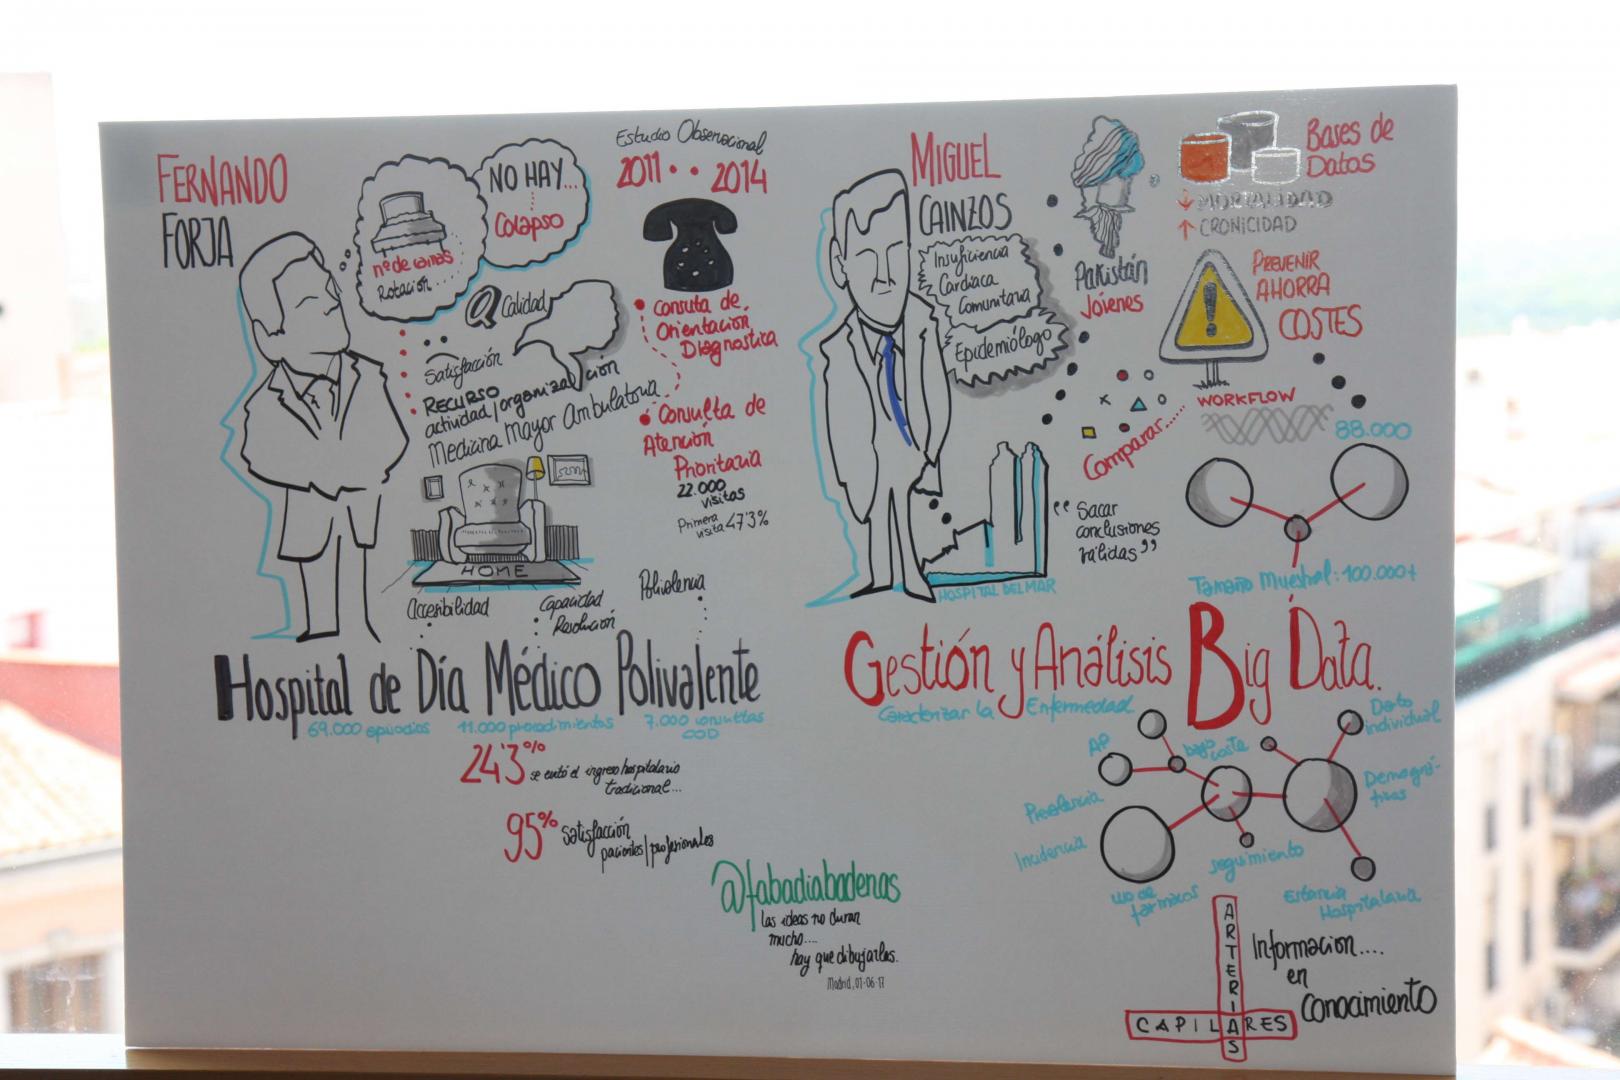 FERNANDO
FORJA
nº de camas
Rotación
NO HAY...
Colapso
Calidad
Satisfacción
RECURSO
actividad/organización
Medicina Mayor Ambulatoria
HOME
Accesibilidad
Capacidad
Resolución
Polivalencia
Estudio Observacional
2011 .. 2014
Consulta de
Orientación
Diagnostica
Consulta de
Atención
Prioritaria
22.000
visitas
Primera
visita 47'3%
Hospital de Día Médico Polivalente
69.000 episodios
11.000 procedimientos
7.000 consultas
COD
24'3%
se evitó el ingreso hospitalario
tradicional...
95%
Satisfacción
pacientes/profesionales
@fabadiabadenas
las ideas no duran
mucho....
hay que dibujarlas.
Madrid, 01-06-17
MIGUEL
CAINZOS
Insuficiencia
Cardiaca
Comunitaria
Epidemiólogo
Pakistán
Jóvenes
Bases de
Datos
↓ MORTALIDAD
↑ CRONICIDAD
PREVENIR
AHORRA
COSTES
!
WORKFLOW
Comparar...
88.000
"Sacar
conclusiones
válidas"
HOSPITAL DEL MAR
Tamaño Muestral: 100.000+
Gestión y Análisis Big Data.
Caracterizar la Enfermedad
AP
bajo coste
Dato
individual
Demográ-
ficas
Prevalencia
Incidencia
seguimiento
uso de
fármacos
Estancia
Hospitalaria
ARTERIAS
CAPILARES
Informacion....
en
Conocimiento